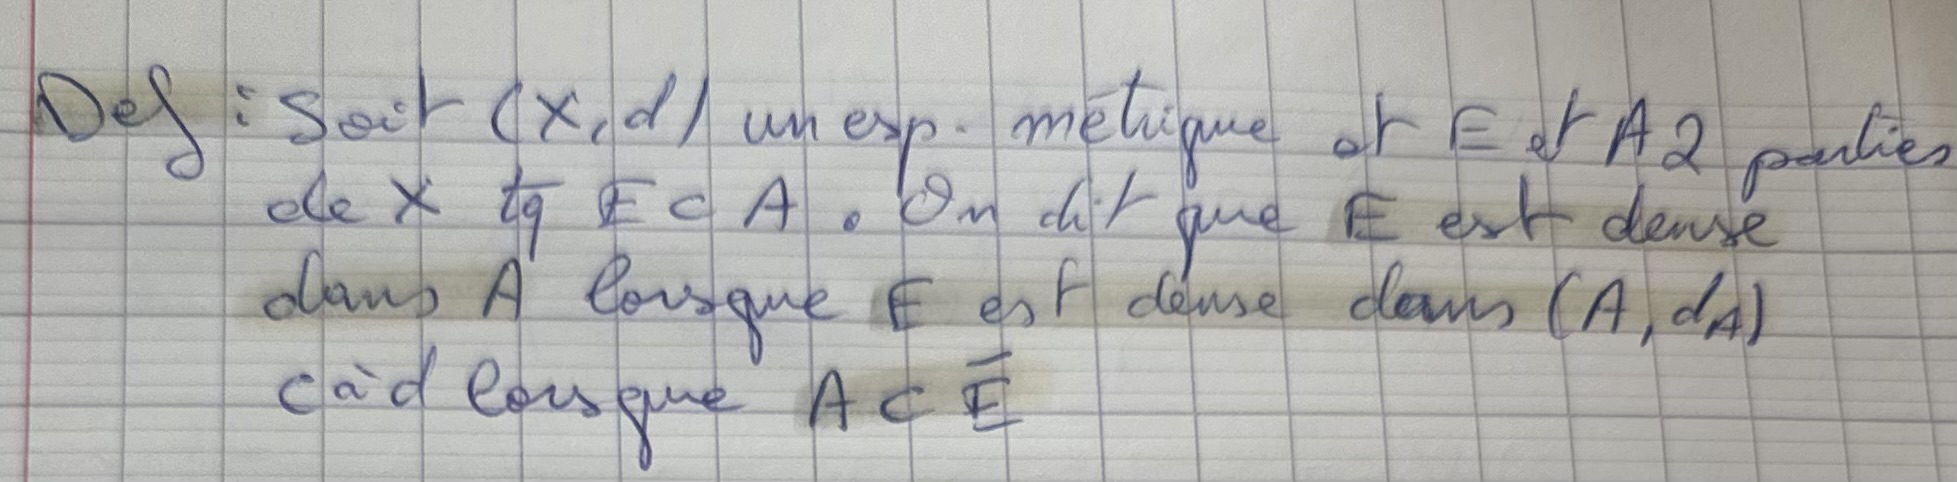 Def : Soit (X, d) un esp. métrique et E et A 2 parties
de X tq E ⊂ A. On dit que E est dense
dans A lorsque E est dense dans (A, d_A)
càd lorsque A ⊂ E̅